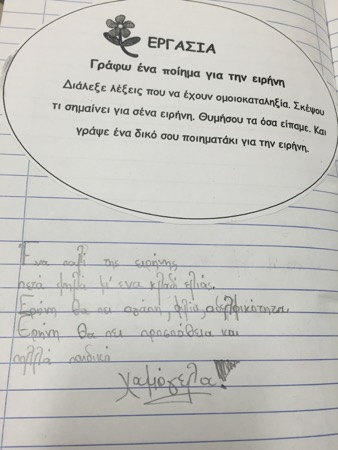 ΕΡΓΑΣΙΑ
Γράφω ένα ποίημα για την ειρήνη
Διάλεξε λέξεις που να έχουν ομοιοκαταληξία. Σκέψου
τι σημαίνει για σένα ειρήνη. Θυμήσου τα όσα είπαμε. Και
γράψε ένα δικό σου ποιηματάκι για την ειρήνη.
Ενα πουλί της ειρήνης
πετά ψηλά μ' ενα κλαδί ελιάς.
Ειρήνη θα πει αγάπη, φιλία, αδελφικότητα.
Ειρήνη θα πει προσπάθεια και
πολλά παιδικά
χαμόγελα!